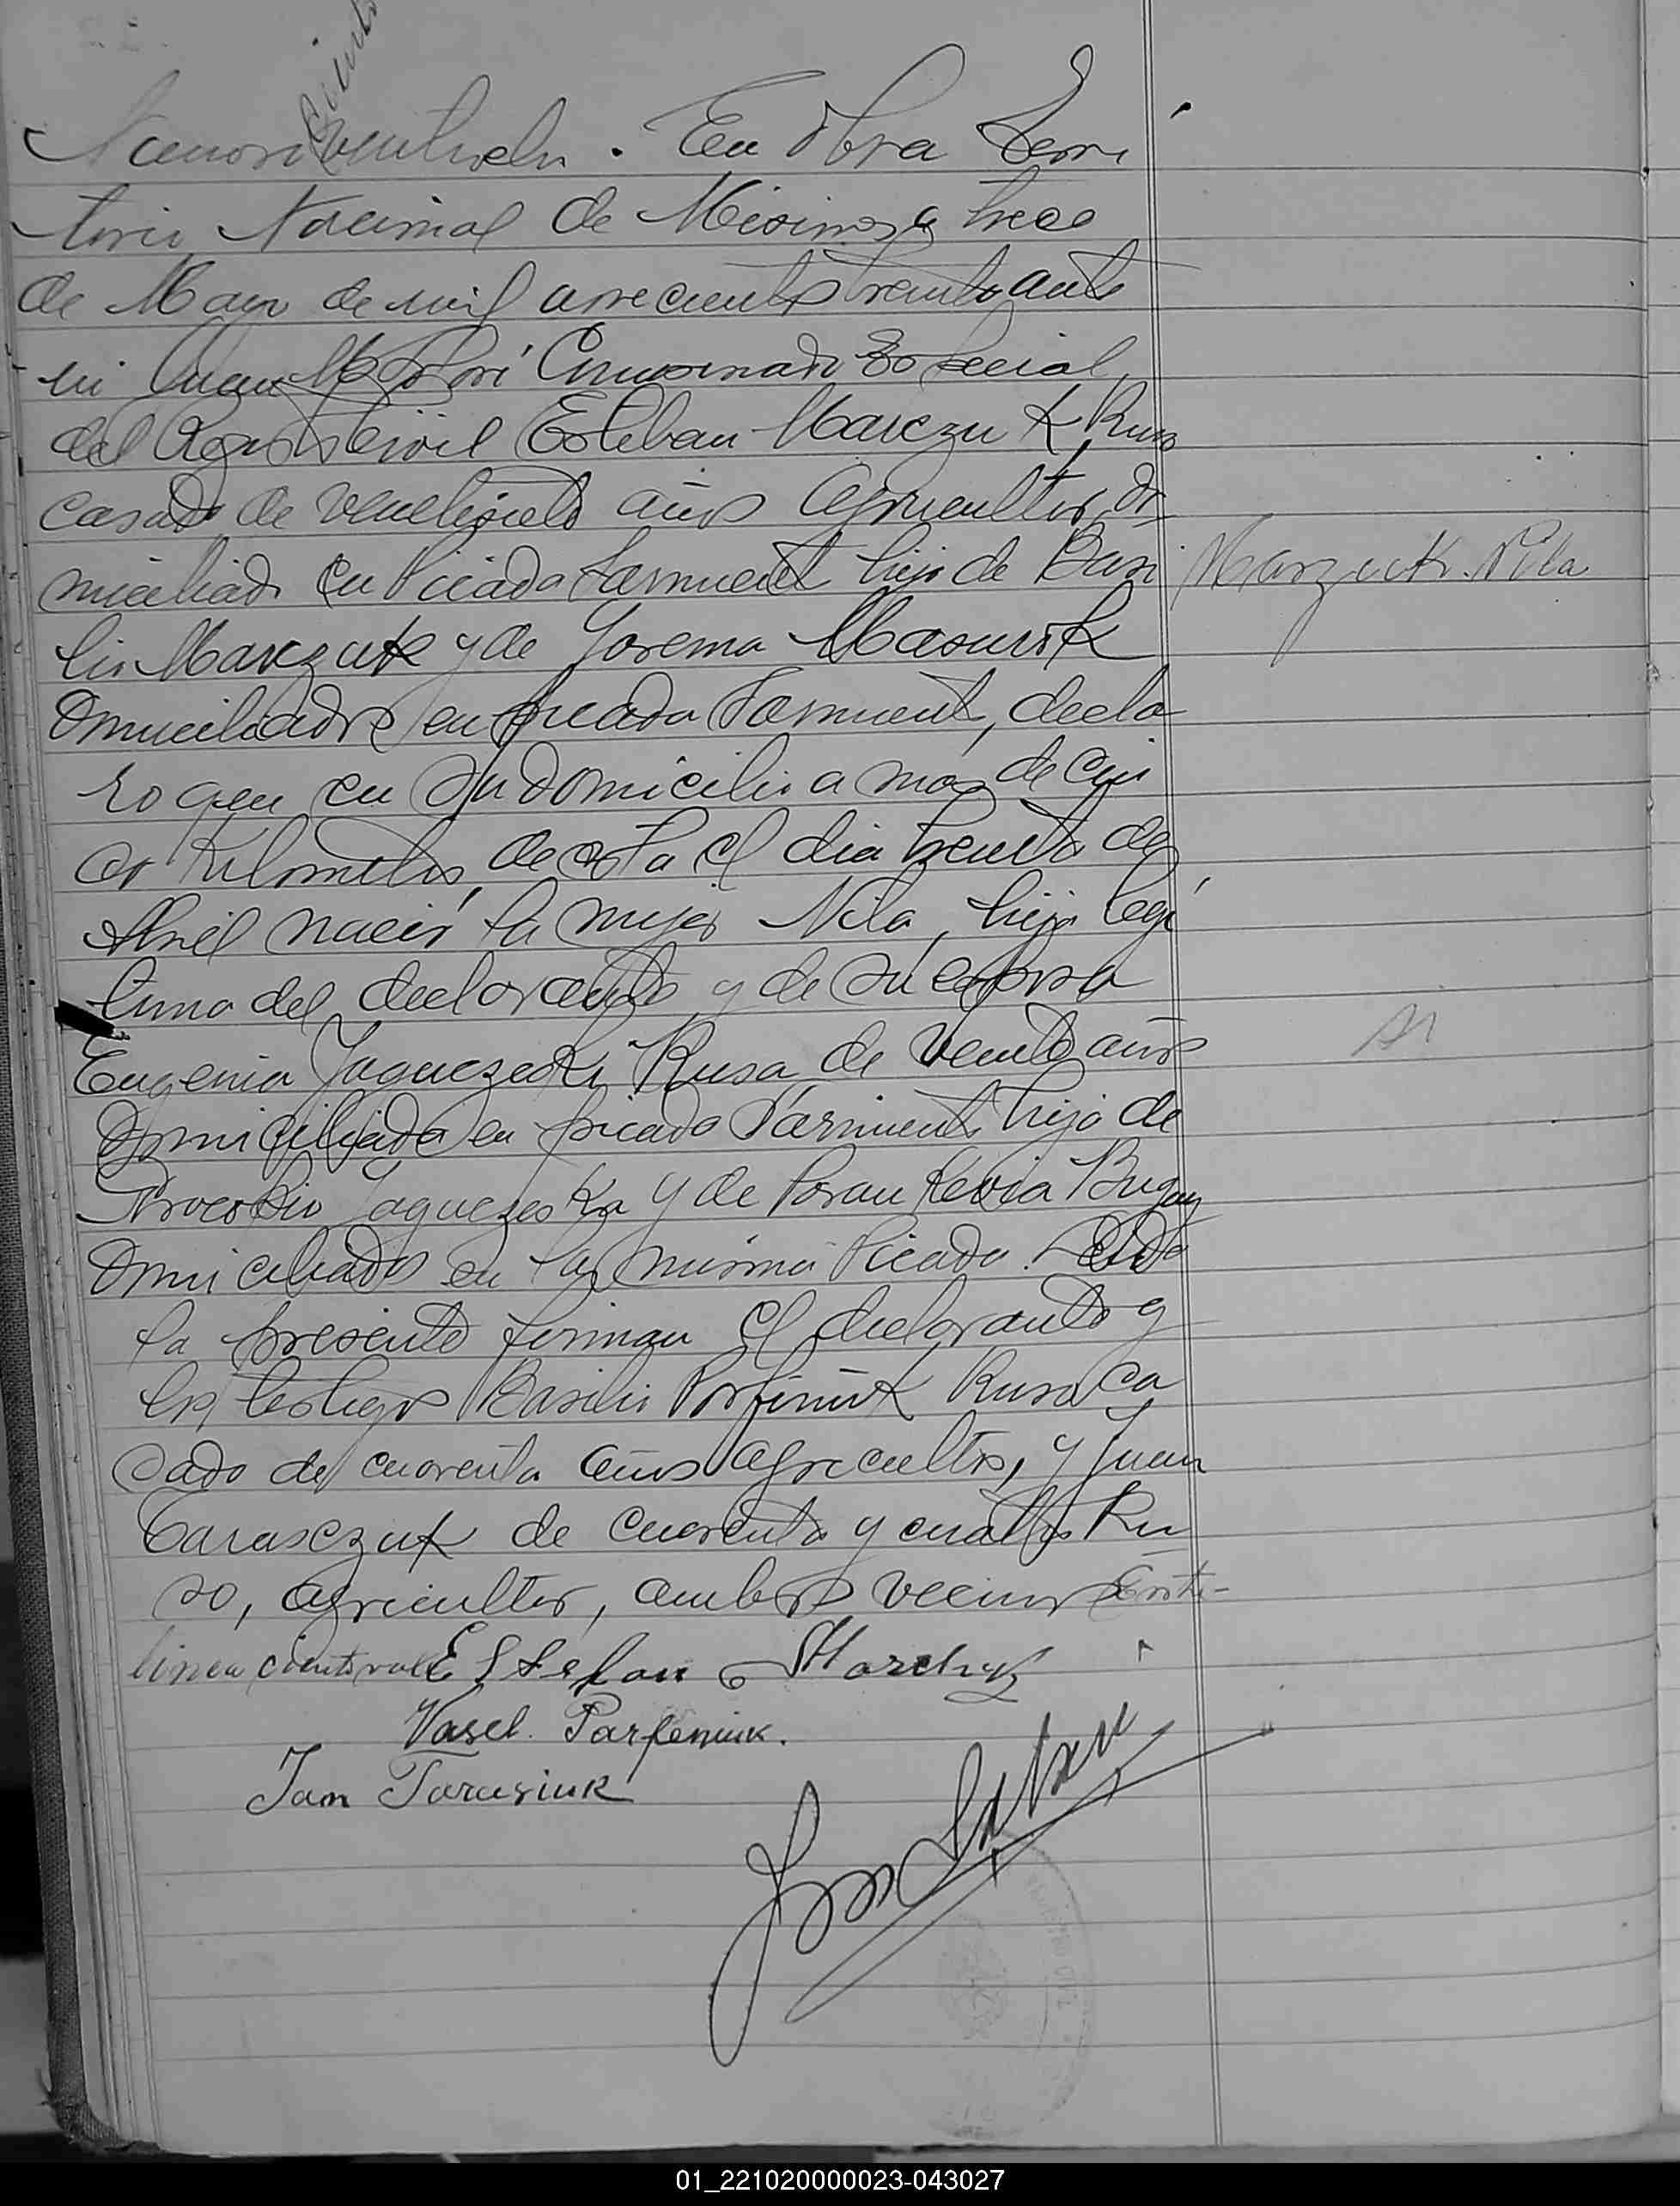 ciento
Numero veintiocho. En Obera Terri
torio Nacional de Misiones a trece
de Mayo de mil novecientos treinta ante
mi Comisionado Especial
del Registro Civil Esteban Marczuk, Ruso
casado de veintisiete años agricultor, do
miciliado en Picada Sarmiento hijo de Basi
lio Marczuk y de Yosema Masurik
domiciliados en picada Sarmiento, decla
ro que en su domicilio a mas de cin
co kilometros de esta el dia treinta de
Abril nació la mujer Nila, hija legi
tima del declarante y de su esposa
Eugenia Jaquezeski Rusa de veinte años
domiciliada en picada Sarmiento hija de
Procopio Jaquezeska y de Bugay
domiciliados en la misma Picada. Leida
la presente firman el declarante y
los testigos Basilio Porfiniuk Ruso ca
sado de cuarenta años agricultor, y Juan
Tarasczuk de cuarenta y cuatro Ru
so, agricultor, ambos vecinos Entre-
linea ciento vale Estefan Marchuk
Vasel. Parfeniuk.
Jan Tarasiuk
Marzuck. Nila
si
01_221020000023-043027